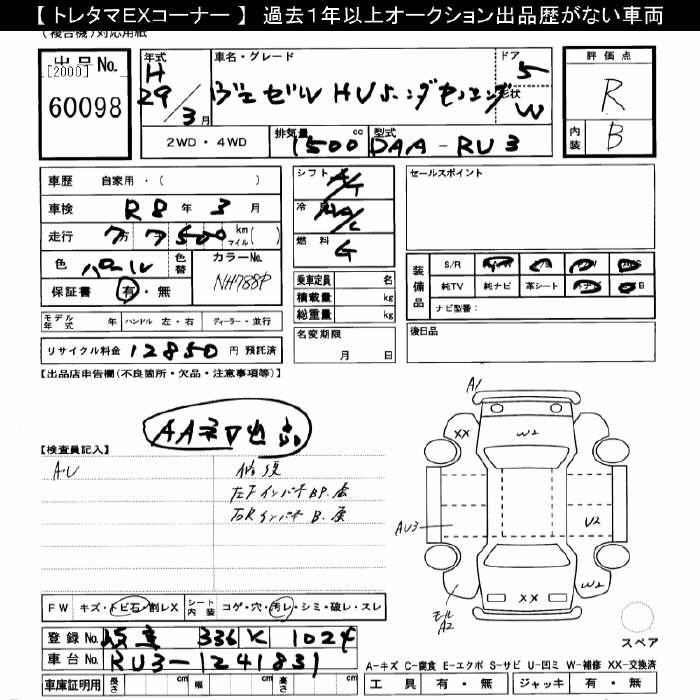 【 トレタマEXコーナー 】 過去1年以上オークション出品歴がない車両
(複合機)対応用紙
出品 No. [2000] 60098
年式 H 29/3月
車名・グレード
ヴェゼル HV ホンダセンシング
ドア 5
形状 W
2WD・4WD
排気量 1500 cc
型式 DAA-RU3
評価点 R
内装 B
車歴 自家用・( )
車検 R8年 3月
走行 7万7500 km マイル( )
色 パール
色替
カラーNo. NH788P
保証書 有・無
シフト A/T
冷房 AA/C
燃料 G
乗車定員 名
積載量 kg
総重量 kg
名変期限 月 日
セールスポイント
装備品
S/R
純TV 純ナビ 革シート
ナビ型番:
後日品
モデル年式 年 ハンドル 左・右 ディーラー・並行
リサイクル料金 12850 円 預託済
【出品店申告欄(不良箇所・欠品・注意事項等)】
AA初出品
【検査員記入】
AU
修復
左Fインパネ BP.歪
右Rインパネ B.歪
A1
XX
W2
AU3
U2
W2
XX
モール A2
スペア
FW キズ・トビ石・割レX
シート内装 コゲ・穴・汚レ・シミ・破レ・スレ
登録 No. 336 K 1024
車台 No. RU3-1241831
車庫証明用 長さ cm 幅 cm 高さ cm
A-キズ C-腐食 E-エクボ S-サビ U-凹ミ W-補修 XX-交換済
工具 有・無 ジャッキ 有・無